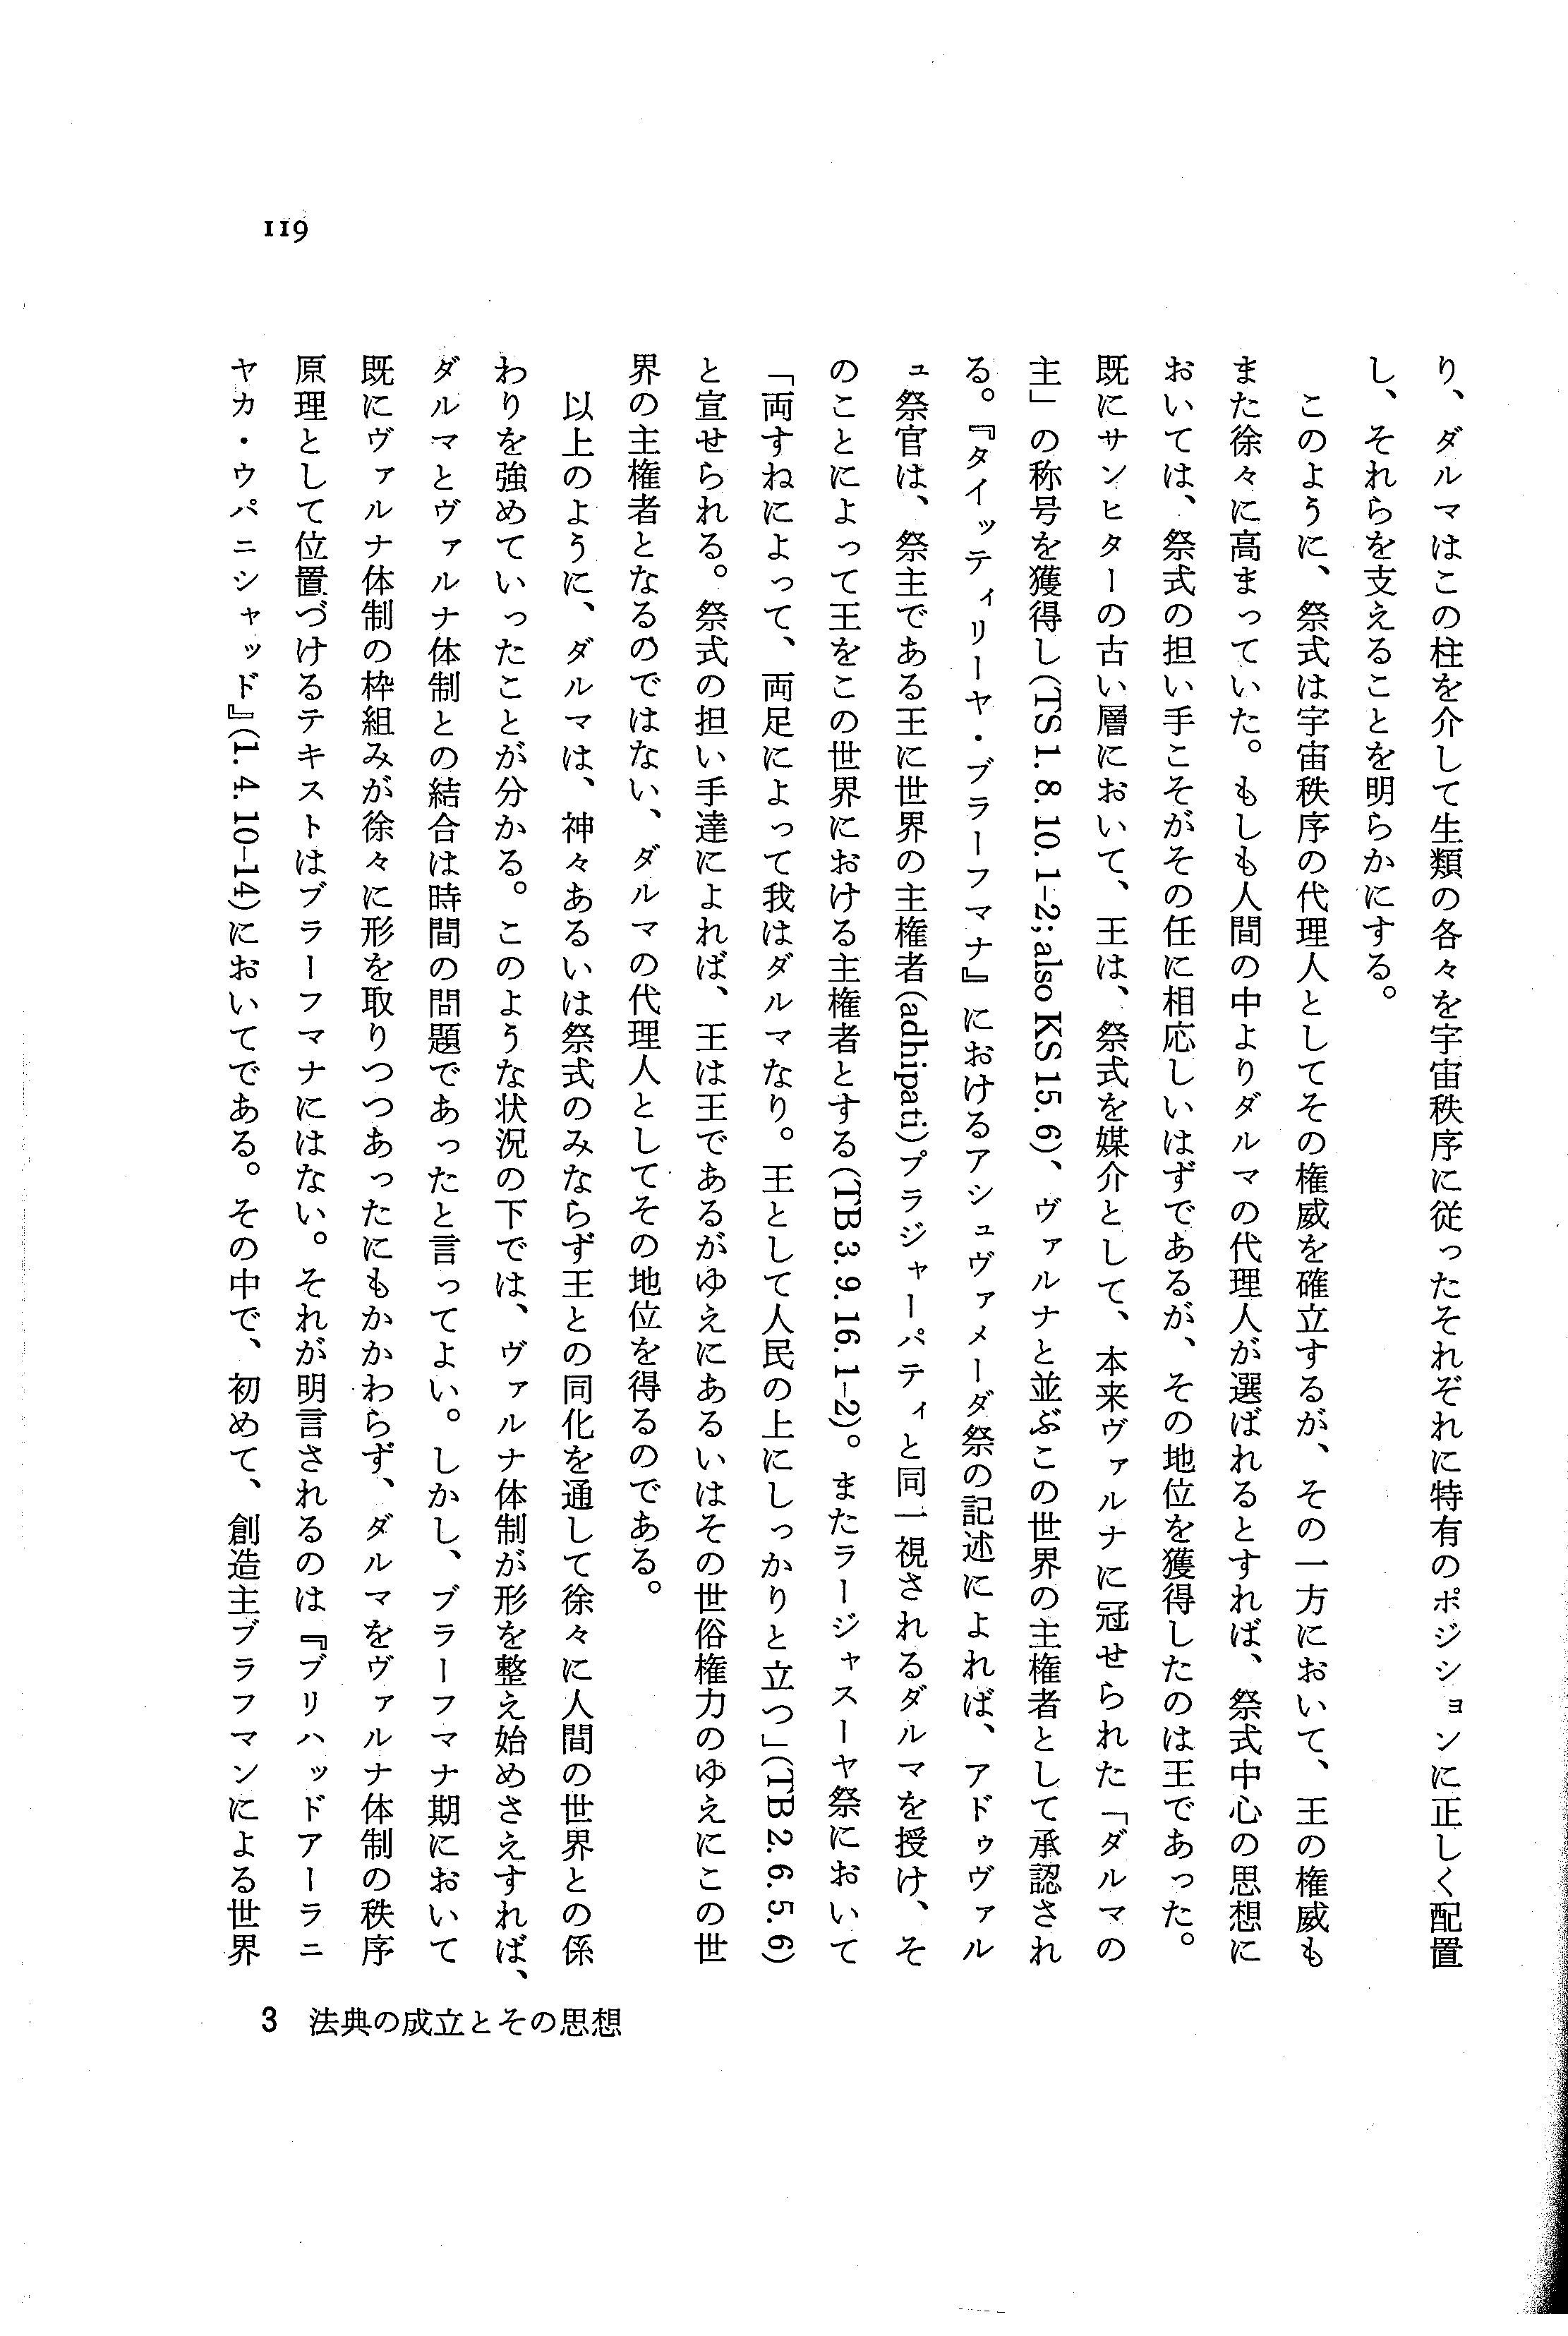 り、ダルマはこの柱を介して生類の各々を宇宙秩序に従ったそれぞれに特有のポジションに正しく配置
し、それらを支えることを明らかにする。
このように、祭式は宇宙秩序の代理人としてその権威を確立するが、その一方において、王の権威も
また徐々に高まっていた。もしも人間の中よりダルマの代理人が選ばれるとすれば、祭式中心の思想に
おいては、祭式の担い手こそがその任に相応しいはずであるが、その地位を獲得したのは王であった。
既にサンヒターの古い層において、王は、祭式を媒介として、本来ヴァルナに冠せられた「ダルマの
主」の称号を獲得し(TS 1. 8. 10. 1-2; also KS 15. 6)、ヴァルナと並ぶこの世界の主権者として承認され
る。『タイッティリーヤ・ブラーフマナ』におけるアシュヴァメーダ祭の記述によれば、アドゥヴァル
ュ祭官は、祭主である王に世界の主権者(adhipati)プラジャーパティと同一視されるダルマを授け、そ
のことによって王をこの世界における主権者とする(TB 3. 9. 16. 1-2)。またラージャスーヤ祭において
「両すねによって、両足によって我はダルマなり。王として人民の上にしっかりと立つ」(TB 2. 6. 5. 6)
と宣せられる。祭式の担い手達によれば、王は王であるがゆえにあるいはその世俗権力のゆえにこの世
界の主権者となるのではない、ダルマの代理人としてその地位を得るのである。
以上のように、ダルマは、神々あるいは祭式のみならず王との同化を通して徐々に人間の世界との係
わりを強めていったことが分かる。このような状況の下では、ヴァルナ体制が形を整え始めさえすれば、
ダルマとヴァルナ体制との結合は時間の問題であったと言ってよい。しかし、ブラーフマナ期において
既にヴァルナ体制の枠組みが徐々に形を取りつつあったにもかかわらず、ダルマをヴァルナ体制の秩序
原理として位置づけるテキストはブラーフマナにはない。それが明言されるのは『ブリハッドアーラニ
ヤカ・ウパニシャッド』(1. 4. 10-14)においてである。その中で、初めて、創造主ブラフマンによる世界
119
3 法典の成立とその思想